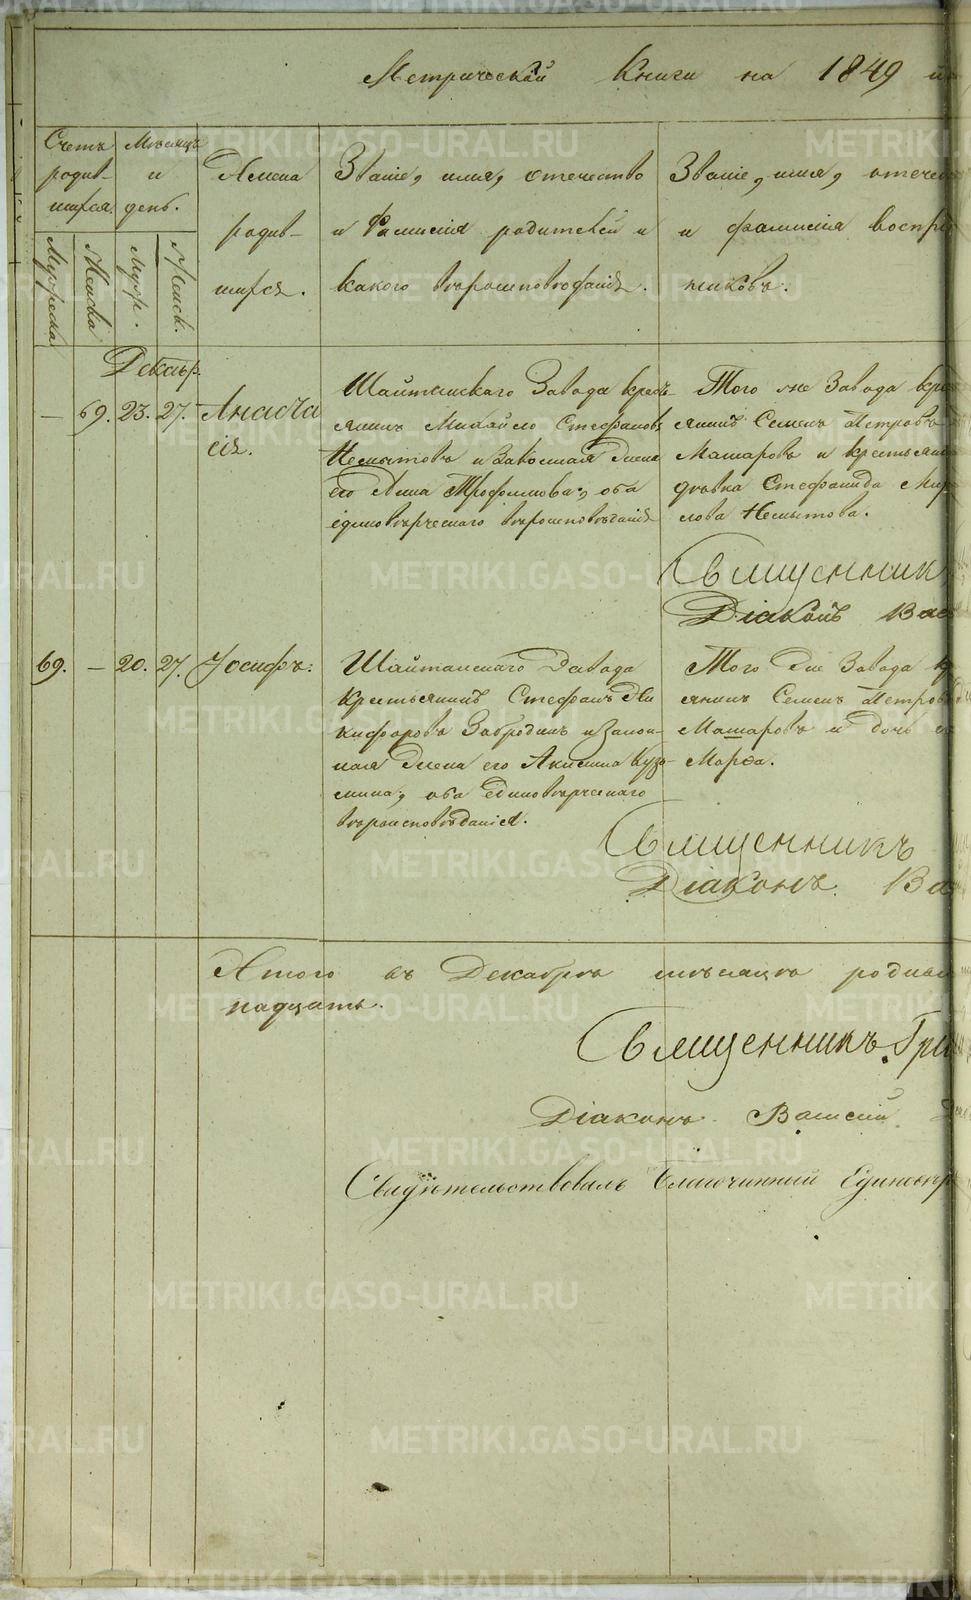 Метрической Книги на 1849 й
Счетъ родив- шихся.
Мѣсяцъ и день.
Имена родив- шихся.
Званіе, имя, отечество
и Фамилія родителей и
какого вѣроисповѣданія.
Званіе, имя, отечес
и фамилія воспрі
никовъ.
Мужеска
Женска
Мужр.
Женск.
Декабр.
— 69. 23. 27. Анаста
сія.
Шайтанскаго Завода кресть-
янинъ Михайло Стефановъ
Немытовъ и законная жена
его Анна Трофимова, оба
единовѣрческаго вѣроисповѣданія
Того же Завода кре
янинъ Семенъ Петровъ
Машаровъ и крестьян
дѣвка Стефанида Ми
лова Немытова.
Священник
Діаконъ Вас
69. — 20. 27. Іосифъ.
Шайтанскаго Завода
крестьянинъ Стефанъ Ни
кифоровъ Забродинъ и закон-
ная жена его Акилина Кузь-
мина, оба Единовѣрческаго
вѣроисповѣданія.
Того же Завода к
янинъ Семенъ Петров
Машаровъ и дочь е
Марфа.
Священникъ
Діаконъ Ва
Итого въ Декабрѣ мѣсяцѣ родивш
надцать.
Священникъ Гри
Діаконъ Василій
Свидѣтельствовалъ Благочинный Единовѣр
METRIKI.GASO-URAL.RU